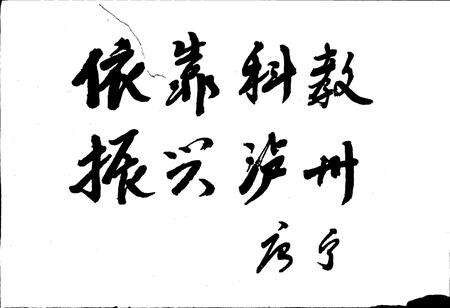 依靠科教
振兴泸州
唐宁